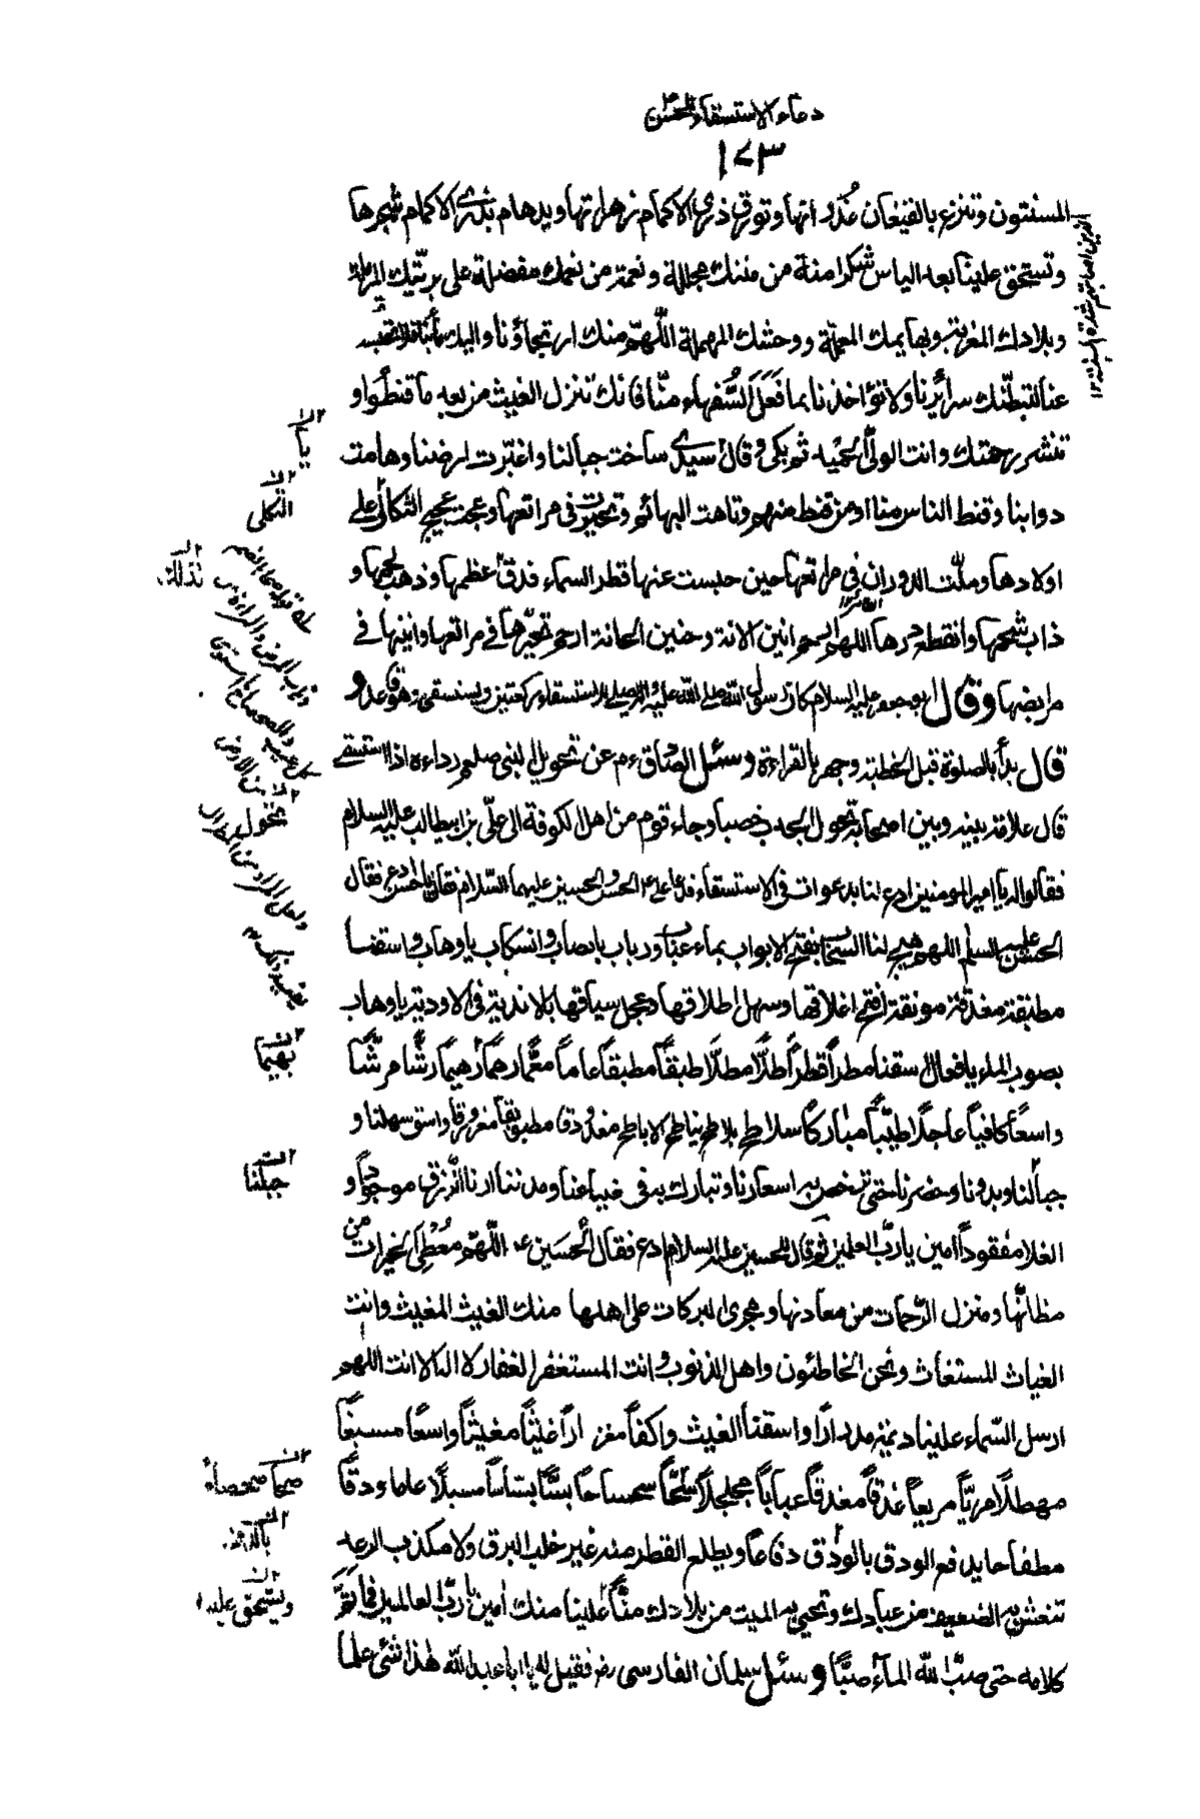 دعاء الاستسقاء للحسن
١٧٣
المسنتون وتترع بالقيعان غدرانها وتورق ذرى الاكمام زهراتها ويدهام بذرى الاكمام شجرها
وتستحق علينا بعد الياس شكرا منة من مننك مجللة ونعمة من نعمك مفضلة على بريتك المرملة
وبلادك المغربة وبهايمك المعملة ووحشك المهملة اللهم منك ارتجاؤنا واليك مآبنا فلا تحبسه
عنا لتبطنك سرائرنا ولا تؤاخذنا بما فعل السفهاء منا فانك تنزل الغيث من بعد ما قنطوا و
تنشر رحمتك وانت الولي الحميد ثم بكى وقال سيدي ساخت جبالنا واغبرت ارضنا وهامت
دوابنا وقنط الناس منا او من قنط منهم وتاهت البهائم وتحيرت في مراتعها وعجت عجيج الثكالى على
اولادها وملت الدوران في مراتعها حين حبست عنها قطر السماء فدق عظمها وذهب لحمها و
ذاب شحمها وانقطع درها اللهم ارحم انين الآنة وحنين الحانة ارحم تحيرها في مراتعها وانينها في
مرابضها وقال ابو جعفر عليه السلام كان رسول الله صلى الله عليه واله يصلي للاستسقاء ركعتين ويستسقي وهو قاعد و
قال بدأ بالصلوة قبل الخطبة وجهر بالقراءة وسئل الصادق ع م عن تحويل النبي صلعم رداءه اذا استسقى
قال علامة بينه وبين اصحابه تحول الجدب خصبا وجاء قوم من اهل الكوفة الى علي بن ابيطالب عليه السلام
فقالوا له يا امير المومنين ادع لنا بدعوات في الاستسقاء فدعا علي ع الحسن والحسين عليهما السلام فقال يا حسن ادع فقال
الحسن عليه السلم اللهم هيج لنا السحاب بفتح الابواب بماء عباب ورباب بانصباب وانسكاب يا وهاب واسقنا
مطبقة مغدقة مونقة افتح اغلاقها وسهل اطلاقها وعجل سياقها بالاندية في الاودية يا وهاب
بصوب الماء يا فعال اسقنا مطرا قطرا طلا مطلا طبقا مطبقا عاما معما رهما رهيما رشا مرشا
واسعا كافيا عاجلا طيبا مباركا سلاطح بلاطح يناطح الاباطح مغدودقا مطبوبقا مغرورقا واسق سهلنا و
جبالنا وبدونا وحضرنا حتى ترخص به اسعارنا وتبارك به في ضياعنا ومدننا ارنا الرزق موجودا و
الغلا مفقودا امين يا رب العلمين ثم قال للحسين عليه السلام ادع فقال الحسين ع اللهم معطي الخيرات من
مظانها ومنزل الرحمات من معادنها ومجرى البركات على اهلها منك الغيث المغيث وانت
الغياث المستغاث ونحن الخاطئون واهل الذنوب وانت المستغفر الغفار لا اله الا انت اللهم
ارسل السماء علينا ديمة مدرارا واسقنا الغيث واكفا مغزارا غيثا مغيثا واسعا مسبغا
مهطلا مريا مريعا غدقا مغدقا عبابا مجلجلا سحا سحساحا بسا بساسا مسبلا عاما ودقا
مطفاحا يدفع الودق بالودق دفاعا ويطلع القطر منه غير خلب البرق ولا مكذب الرعد
تنعش به الضعيف من عبادك وتحيي به الميت من بلادك منا علينا منك امين يا رب العالمين فما تم
كلامه حتى صب الله المآء صبا وسئل سلمان الفارسي رض فقيل له يا ابا عبد الله هذا شئ علما
يا
الثكلى
بهيما
جبلنا
وتستحق علينا